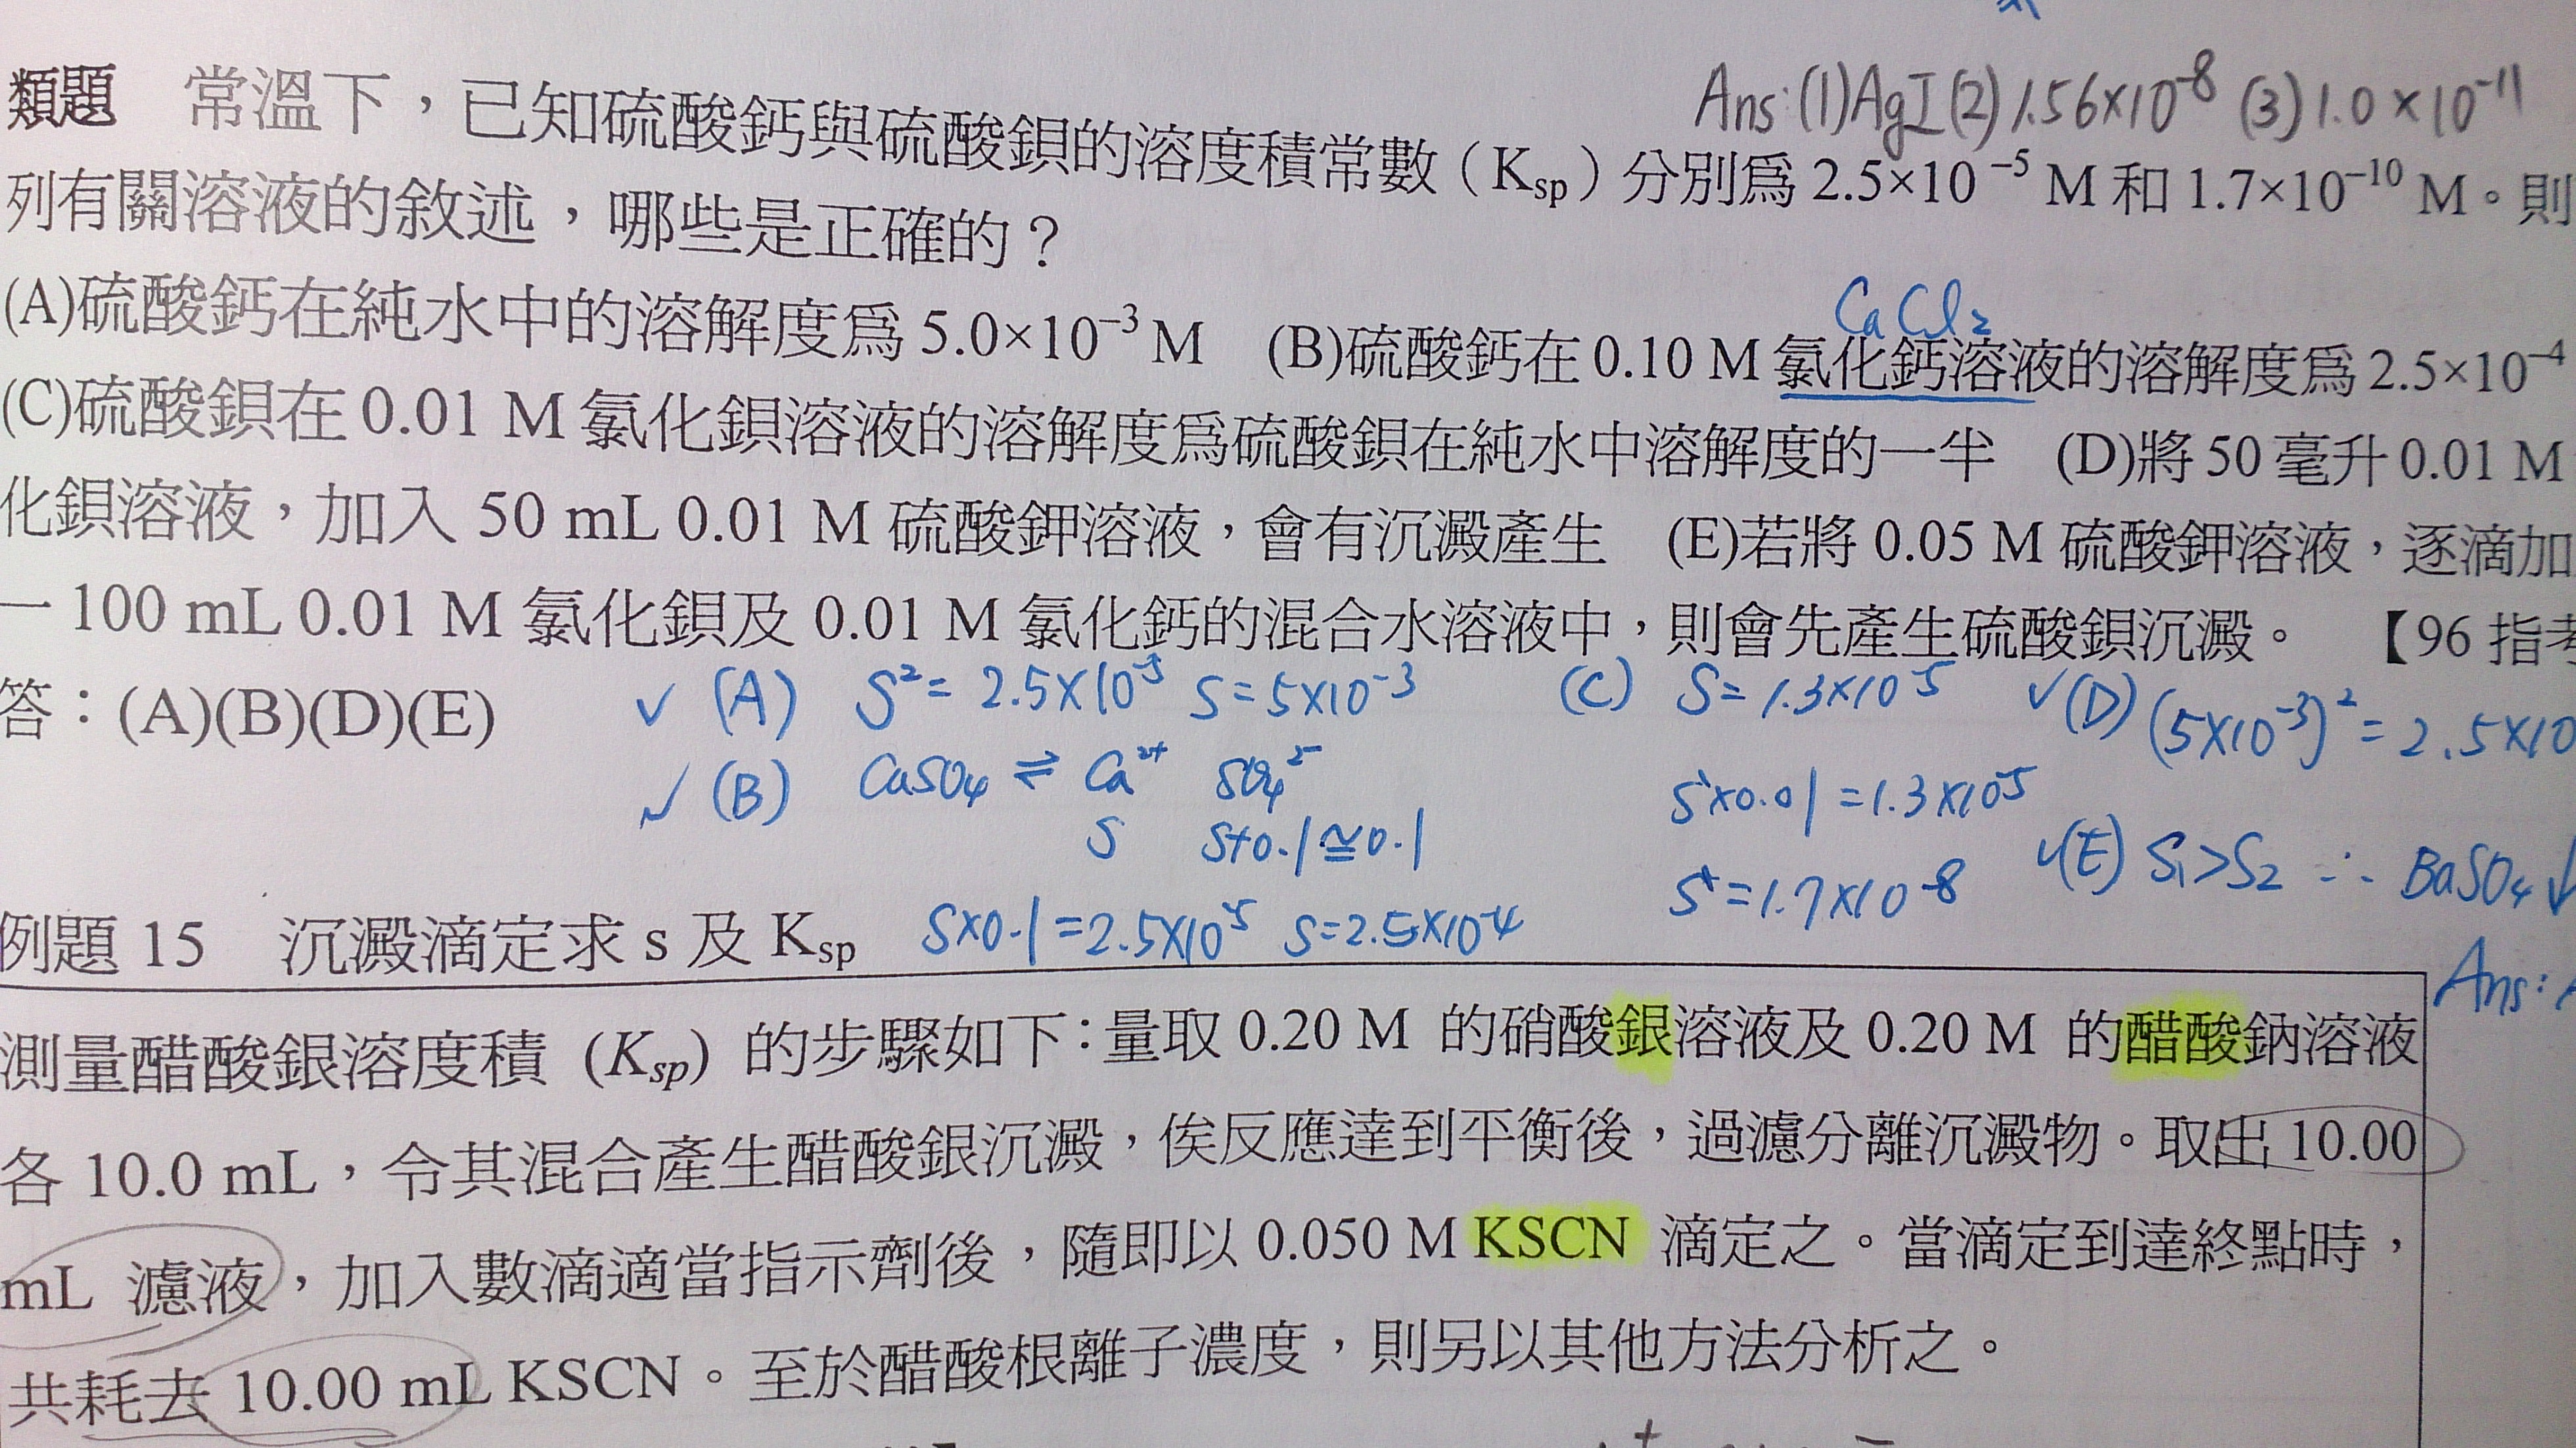 Ans:(1)AgI(2)1.56×10⁻⁸ (3)1.0×10⁻¹¹
類題 常溫下，已知硫酸鈣與硫酸鋇的溶度積常數（Ksp）分別為 2.5×10⁻⁵ M 和 1.7×10⁻¹⁰ M。則
列有關溶液的敘述，哪些是正確的？
CaCl₂
(A)硫酸鈣在純水中的溶解度為 5.0×10⁻³ M (B)硫酸鈣在 0.10 M 氯化鈣溶液的溶解度為 2.5×10⁻⁴
(C)硫酸鋇在 0.01 M 氯化鋇溶液的溶解度為硫酸鋇在純水中溶解度的一半 (D)將 50 毫升 0.01 M
化鋇溶液，加入 50 mL 0.01 M 硫酸鉀溶液，會有沉澱產生 (E)若將 0.05 M 硫酸鉀溶液，逐滴加
一 100 mL 0.01 M 氯化鋇及 0.01 M 氯化鈣的混合水溶液中，則會先產生硫酸鋇沉澱。 【96 指考
答：(A)(B)(D)(E)
✓ (A) S²=2.5×10⁻⁵ S=5×10⁻³ (C) S=1.3×10⁻⁵ ✓(D) (5×10⁻³)²=2.5×10
✓ (B) CaSO₄ ⇌ Ca²⁺ SO₄²⁻ S'×0.01=1.3×10⁻⁵
S S+0.1≅0.1 ✓(E) S₁>S₂ ∴ BaSO₄↓
S×0.1=2.5×10⁻⁵ S=2.5×10⁻⁴ S'=1.7×10⁻⁸
Ans:
例題 15 沉澱滴定求 s 及 Ksp
測量醋酸銀溶度積 (Ksp) 的步驟如下：量取 0.20 M 的硝酸銀溶液及 0.20 M 的醋酸鈉溶液
各 10.0 mL，令其混合產生醋酸銀沉澱，俟反應達到平衡後，過濾分離沉澱物。取出 10.00
mL 濾液，加入數滴適當指示劑後，隨即以 0.050 M KSCN 滴定之。當滴定到達終點時，
共耗去 10.00 mL KSCN。至於醋酸根離子濃度，則另以其他方法分析之。